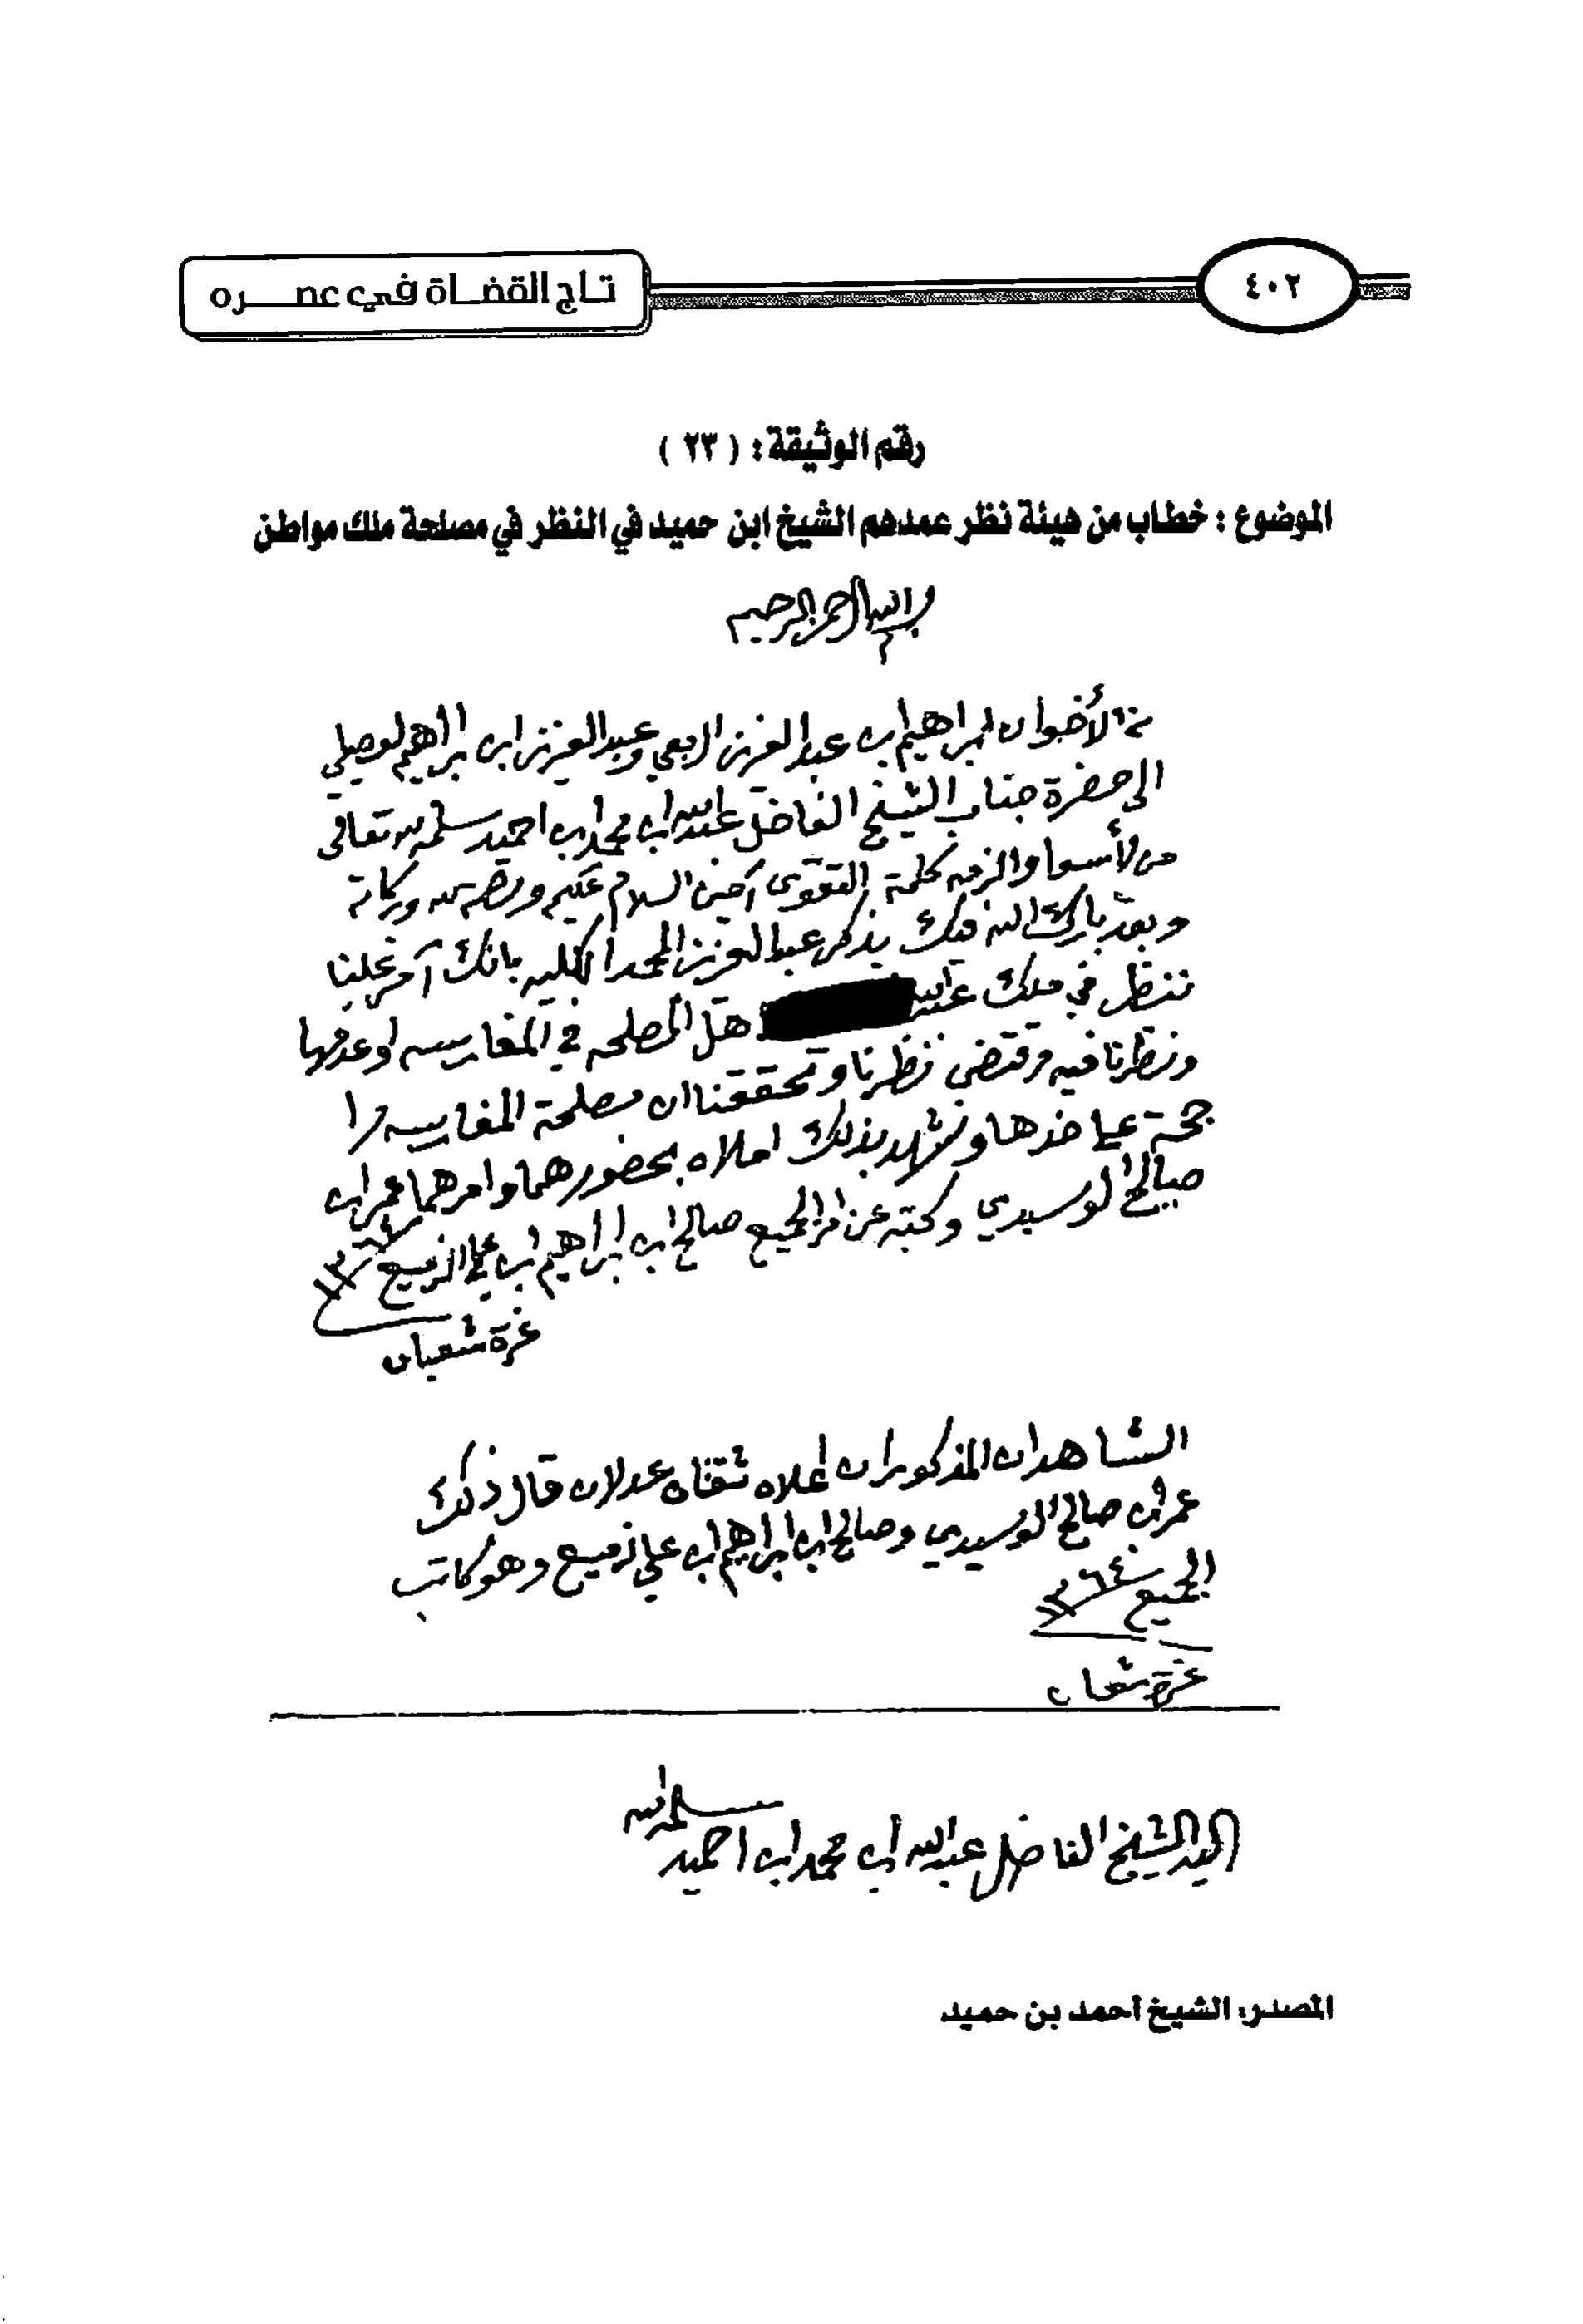 تاج القضاة في عصره
٤٠٢
رقم الوثيقة: ( ٢٣ )
الموضوع : خطاب من هيئة نظر عمدهم الشيخ ابن حميد في النظر في مصلحة ملك مواطن
بسم الله الرحمن الرحيم
من الأخوان ابراهيم اب عبدالعزيز الربعي وعبدالعزيز ابن ابراهيم
الى حضرة جناب الشيخ الفاضل عبدالله اب محمد اب احميد سلمه الله تعالى
من الأسوا والزمه كلمة التقوى آمين السلام عليكم ورحمة الله وبركاته
وبعد بارك الله فيك يذكر عبدالعزيز المحمد بانك آمر علينا
ننظر في ملك عبدالله هل المصلحه في المغارسه او عدمها
ونظرنا فيه مقتضى نظرنا وتحققنا ان مصلحة المغارسه
ونشهد بذلك املاه بحضورهما وامرهما عمر اب
صالح الوسيدي وكتبه عن امر الجميع صالح اب ابراهيم اب علي الزميع
غرة شعبان
الشاهدان المذكوران اعلاه ثقتان عدلان قال ذلك
عمر اب صالح الوسيدي وصالح اب ابراهيم اب علي زميع وهو كاتب
الجميع ١٣٦٤
غرة شعبان
الشيخ الفاضل عبدالله اب محمد اب احميد
سلمه الله
المصدر: الشيخ أحمد بن حميد